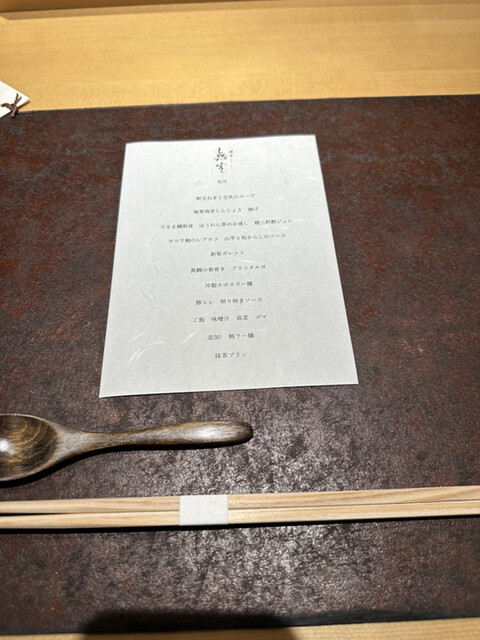 新玉ねぎと豆乳のスープ
海老真丈しんじょう　揚げ
だるま鯛刺身　ほうれん草のお浸し　鯛三杯酢ジュレ
マグロ のレアカツ　山芋と和からしのソース
新筍ガレット
真鯛の春巻き　ブランタルガ
冷製カボスラー麺
豚ヒレ　照り焼きソース
ご飯　味噌汁　高菜　ゴマ
追加）　鯛ラー麺
抹茶プリン